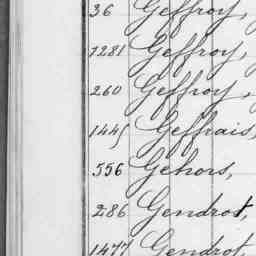 36 Geffroy,
1281 Geffroy,
260 Geffroy,
1445 Geffrais,
556 Gehors,
286 Gendrot,
1477 Gendrot,